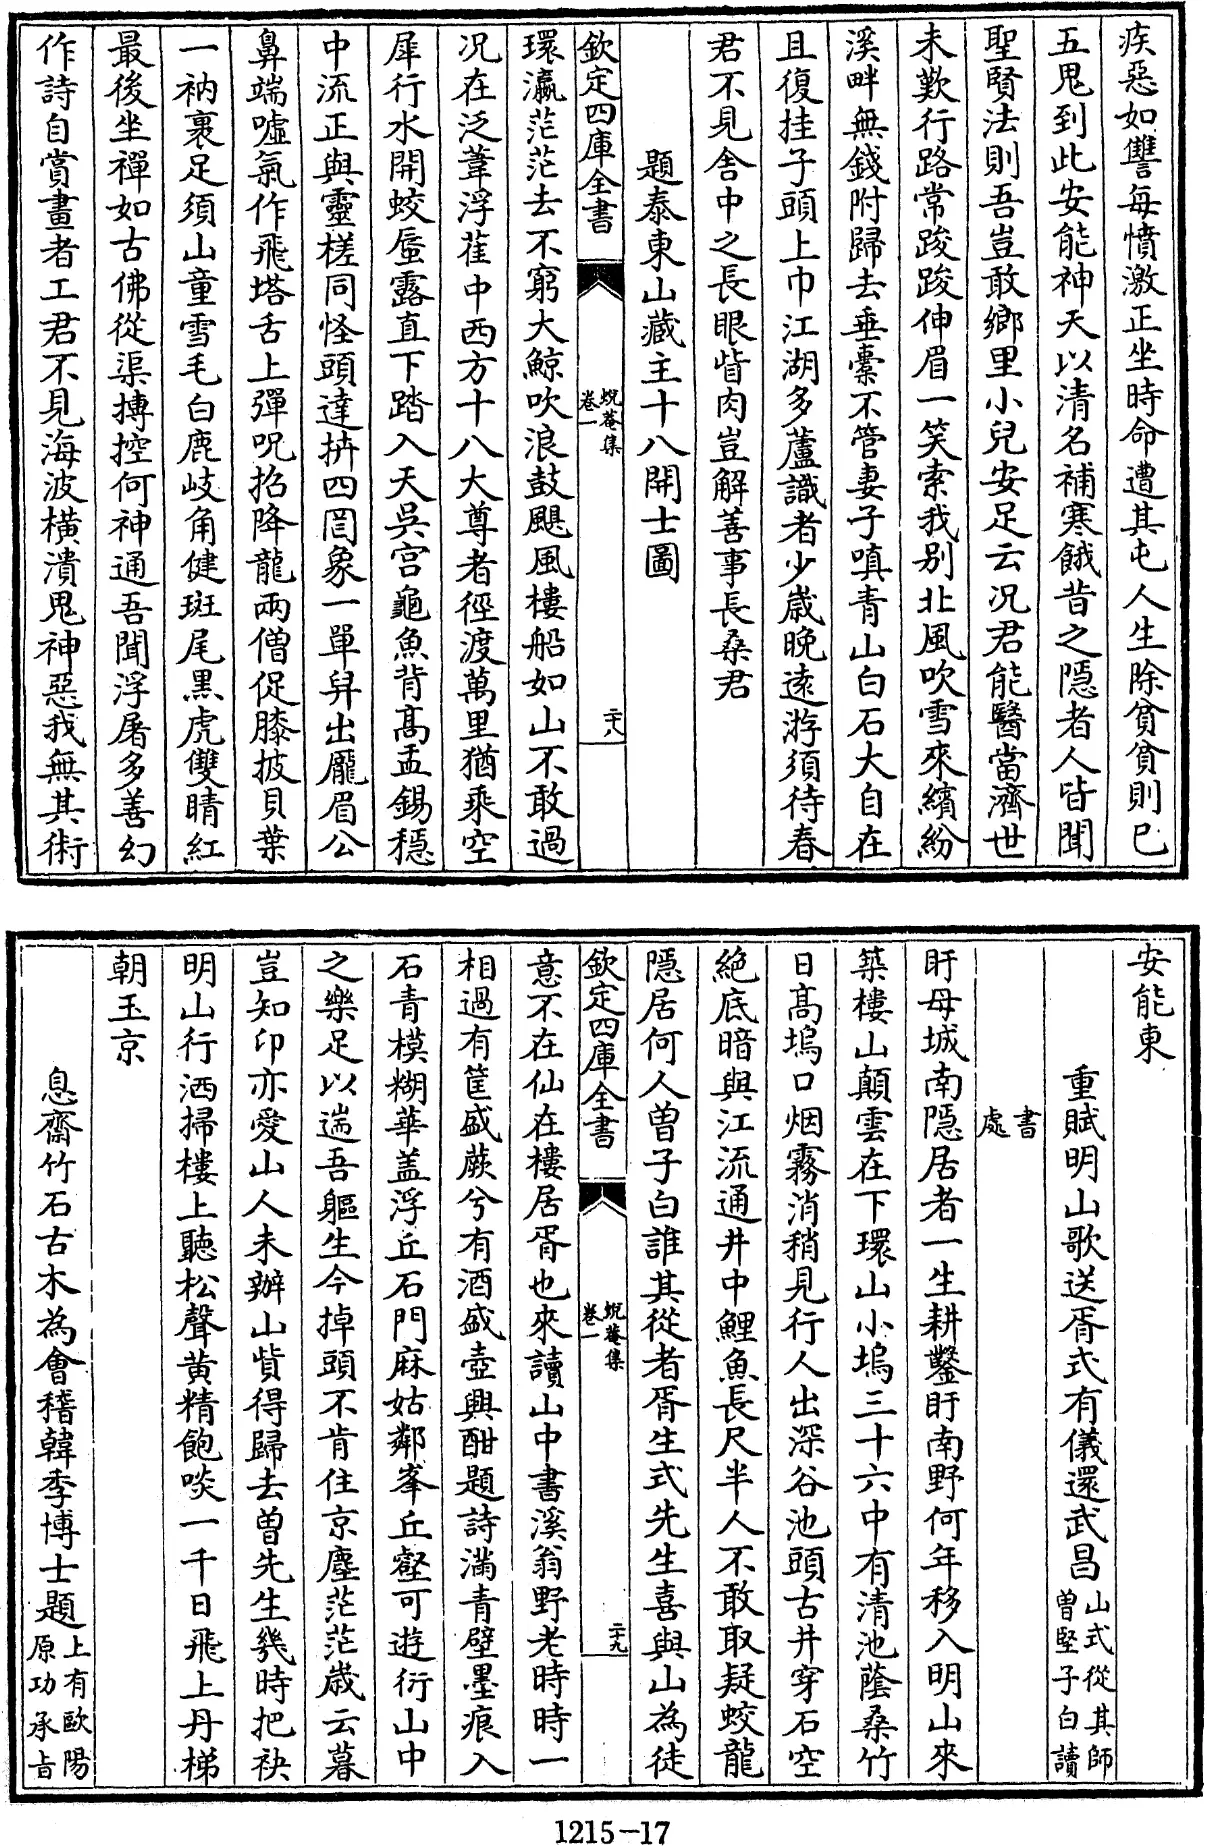 疾惡如讐每憤激正坐時命遭其屯人生除貧貧則已
五鬼到此安能神天以清名補寒餓昔之隠者人皆聞
聖賢法則吾豈敢鄉里小兒安足云况君能醫當濟世
未歎行路常踆踆伸眉一笑索我别北風吹雪來繽紛
溪畔無錢附歸去垂橐不管妻子嗔青山白石大自在
且復挂子頭上巾江湖多蘆識者少歳晩逺游須待春
君不見舎中之長眼眥肉豈解善事長桑君
題泰東山藏主十八開士圖
欽定四庫全書
蛻菴集
卷一
二十八
環瀛茫茫去不窮大鯨吹浪鼓颶風樓船如山不敢過
况在泛葦浮萑中西方十八大尊者徑渡萬里猶乘空
犀行水開蛟蜃露直下踏入天吳宫龜魚背髙盂錫穩
中流正與靈槎同怪頭達拚四罔象一單舁出龎眉公
鼻端嘘氣作飛塔舌上彈呪招降龍兩僧促膝披貝葉
一衲裹足須山童雪毛白鹿岐角健斑尾黑虎雙睛紅
最後坐禪如古佛從渠摶控何神通吾聞浮屠多善幻
作詩自賞畫者工君不見海波横潰鬼神惡我無其術
安能東
重賦明山歌送胥式有儀還武昌
山式從其師
曽堅子白讀
書
處
盱母城南隠居者一生耕鑿盱南野何年移入明山來
築樓山顛雲在下環山小塢三十六中有清池蔭桑竹
日髙塢口烟霧消稍見行人出深谷池頭古井穿石空
絶底暗與江流通井中鯉魚長尺半人不敢取疑蛟龍
隠居何人曽子白誰其從者胥生式先生喜與山為徒
欽定四庫全書
蛻菴集
卷一
二十九
意不在仙在樓居胥也來讀山中書溪翁野老時時一
相過有筐盛蕨兮有酒盛壺興酣題詩滿青壁墨痕入
石青模糊華盖浮丘石門麻姑鄰峯丘壑可遊衍山中
之樂足以遄吾軀生今掉頭不肯住京塵茫茫歳云暮
豈知印亦愛山人未辦山貲得歸去曽先生幾時把袂
明山行洒掃樓上聽松聲黄精飽啖一千日飛上丹梯
朝玉京
息齋竹石古木為會稽韓季博士題
上有歐陽
原功承旨
1215-17